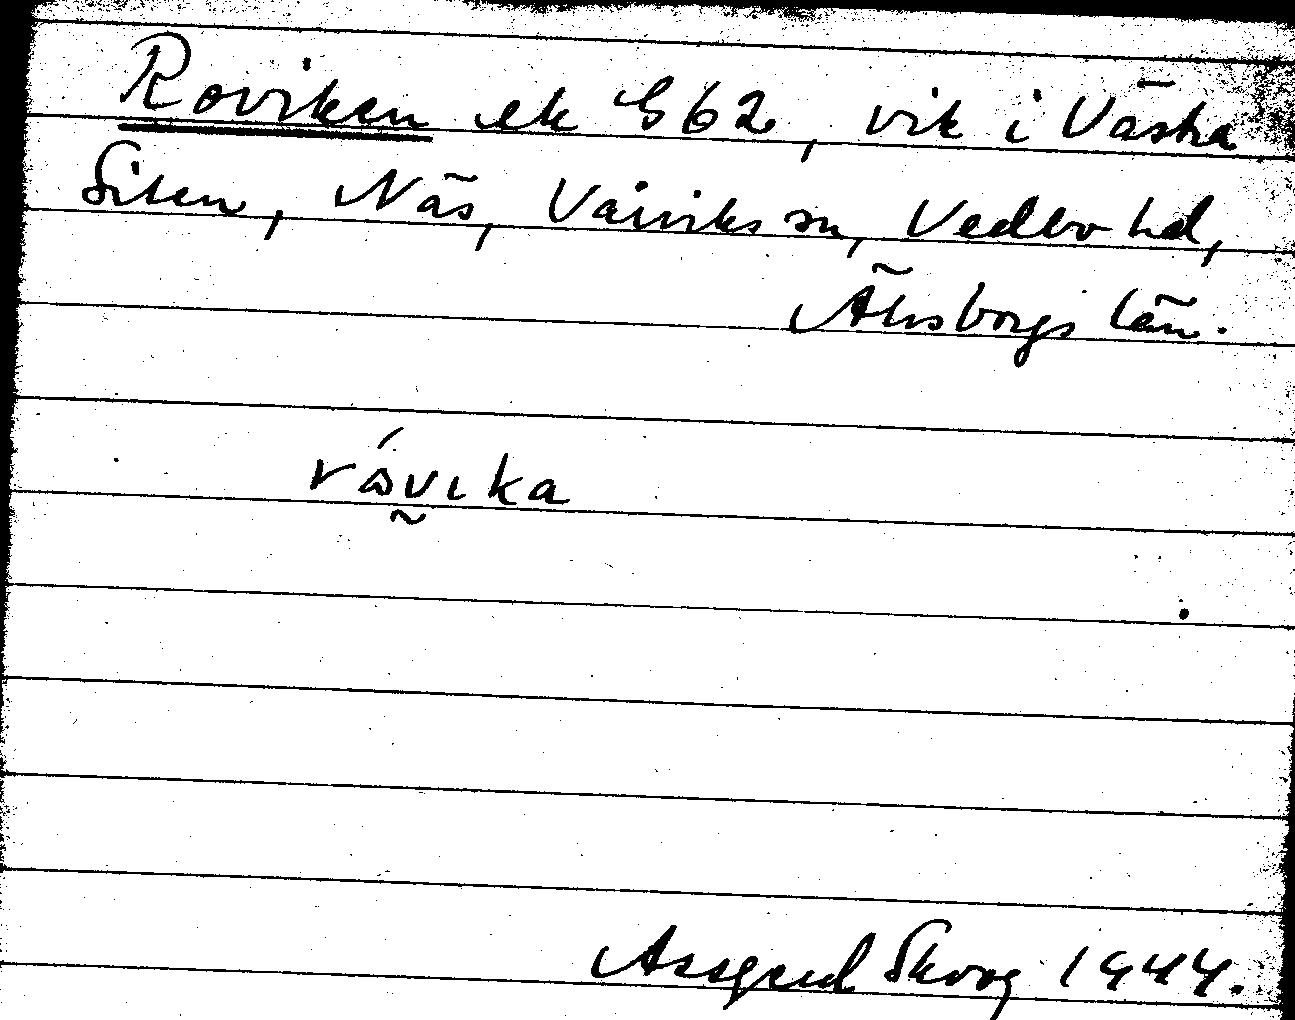 Roviken ek G62, vik i Västra
Silen, Näs, Vårviks sn, Vedbo hd,
Älvsborgs län.
rώvıka
Assgrud Skoog 1944.